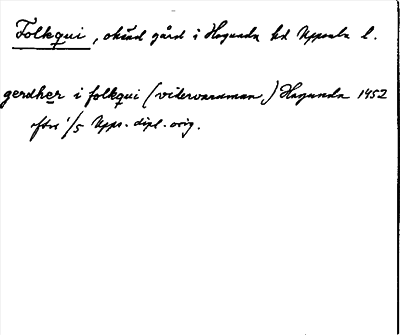 Folkqui, okänd gård i Hagunda hd Uppsala l.
gerdher i folkqui (vidervaruman) Hagunda 1452
efter 1/5 Upps. dipl. orig.